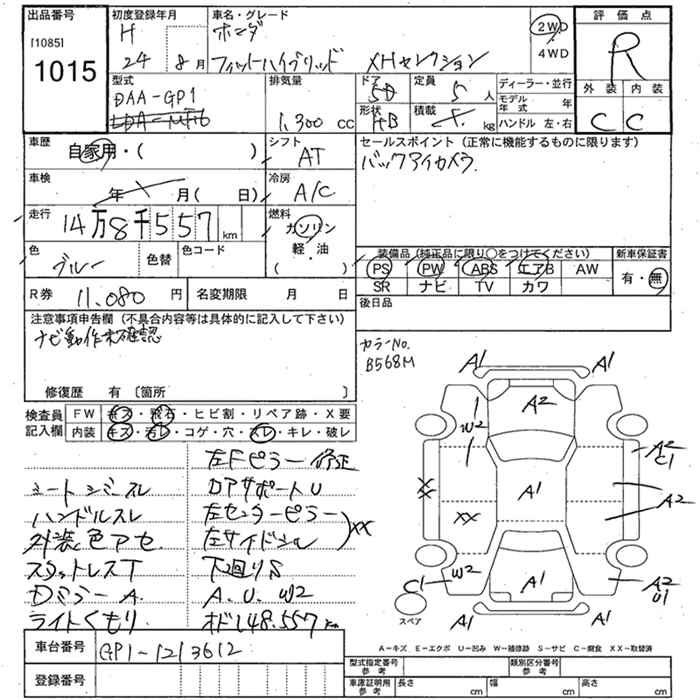 出品番号
[1085]
1015
初度登録年月
H
24 8月
車名・グレード
ホンダ
フィットハイブリッド XHセレクション
2WD
・
4WD
評価点
R
外装 内装
C C
型式
DAA-GP1
排気量
1,300 cc
ドア
5D
形状
HB
定員
5 人
積載
kg
ディーラー・並行
モデル年式 年
ハンドル 左・右
車歴
自家用・( )
シフト
AT
セールスポイント(正常に機能するものに限ります)
バックアイカメラ
車検
年 月( 日)
冷房
A/C
走行
14万8千557km
燃料
ガソリン
軽・油
( )
色
ブルー
色替
色コード
装備品(純正品に限り○をつけてください)
PS PW ABS エアB AW
SR ナビ TV カワ
新車保証書
有・無
R券 11,080円
名変期限 月 日
後日品
注意事項申告欄(不具合内容等は具体的に記入して下さい)
ナビ動作未確認
修復歴 有〔箇所 〕
カラーNo.
B568M
検査員記入欄
FW キズ・飛石・ヒビ割・リペア跡・X要
内装 キズ・汚レ・コゲ・穴・スレ・キレ・破レ
左Fピラー修正
シートシミスレ コアサポートU
ハンドルスレ 左センターピラー
外装色アセ 左サイドシル XX
スタットレスT 下廻りS
DミラーA. A.U.W2
ライトくもり オド148.557km
A1 A1
A2
W2
A2
C1
XX
A1
XX
A2
C1 W2
A1
A2
U1
A1 A1
スペア
A-キズ E-エクボ U-凹み W-補修跡 S-サビ C-腐食 XX-取替済
車台番号 GP1-1213612
登録番号
型式指定番号参考
類別区分番号参考
車庫証明用参考
長さ cm
幅 cm
高さ cm